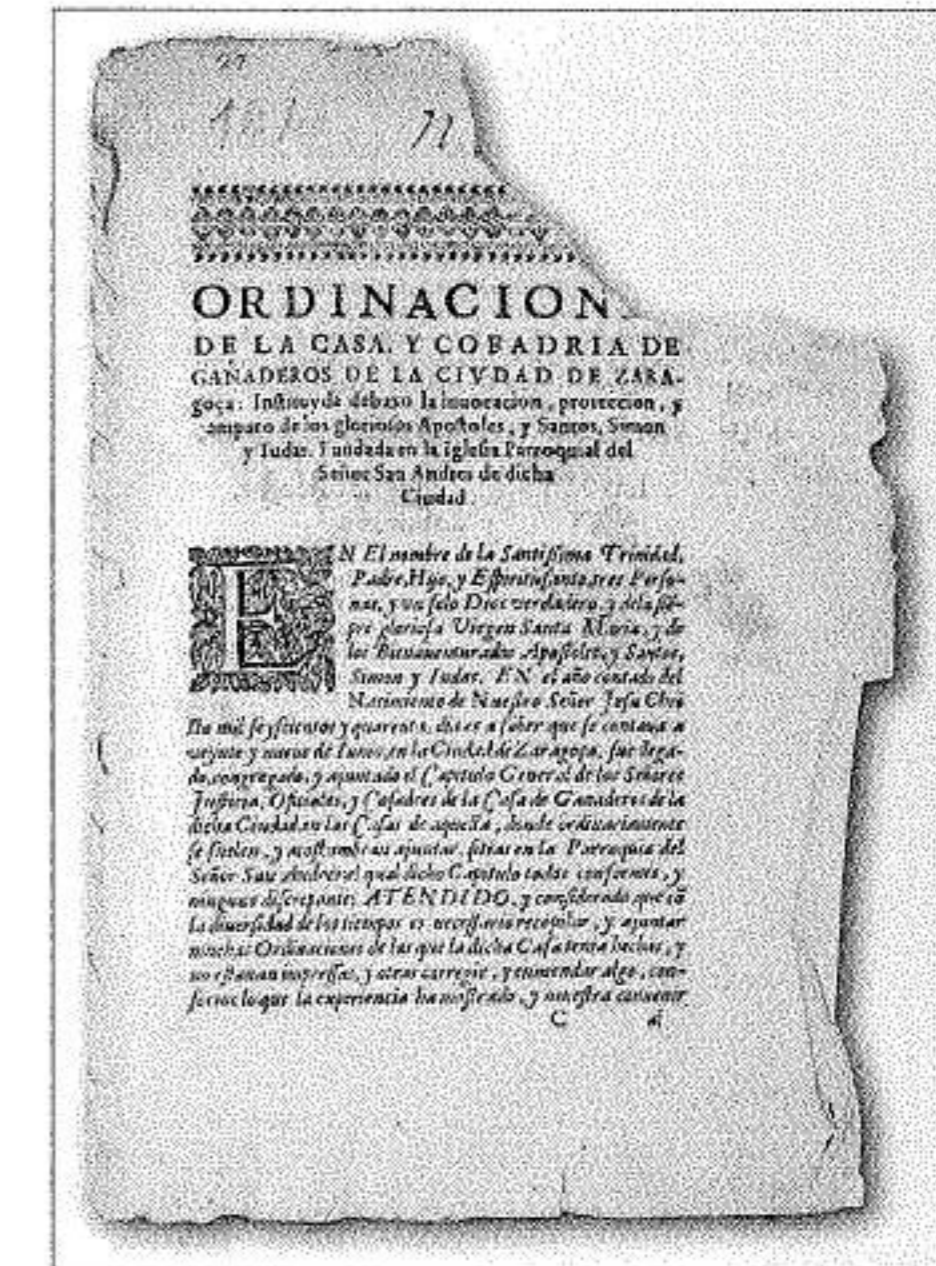 27
77
ORDINACION
DE LA CASA, Y COFADRIA DE
GAÑADEROS DE LA CIVDAD DE ZARA-
goça: Instituyda debaxo la inuocacion, proteccion, y
amparo de los gloriosos Apostoles, y Santos, Simon
y Iudas. Fundada en la Iglesia Parroquial del
Señor San Andres de dicha
Ciudad.
EN El nombre de la Santissima Trinidad,
Padre, Hijo, y Espiritusanto, tres Perso-
nas, y vn solo Dios verdadero, y dela siē-
pre gloriosa Virgen Santa Maria, y de
los Bienauenturados Apostoles, y Santos,
Simon y Iudas. EN el año contado del
Nacimiento de Nuestro Señor Jesu Chri
sto mil seyscientos y quarenta, dia es a saber que se contaua a
veynte y nueue de Iunio, en la Ciudad de Zaragoça, fue llega-
do, congregado, y ajuntado el Capitulo General de los Señores
Justicia, Oficiales, y Cofadres de la Casa de Ganaderos de la
dicha Ciudad en las Casas de aquella, donde ordinariamente
se suelen, y acostumbran ajuntar, sitias en la Parroquia del
Señor San Andres: el qual dicho Capitulo todos conformes, y
ninguno discrepante; ATENDIDO, y considerado que cō
la diuersidad de los tiempos es necessario recopilar, y ajuntar
muchas Ordinaciones de las que la dicha Casa tenia hechas, y
no estauan impressas, y otras corregir, y enmendar algo, con-
forme lo que la experiencia ha mostrado, y muestra conuenir
C al